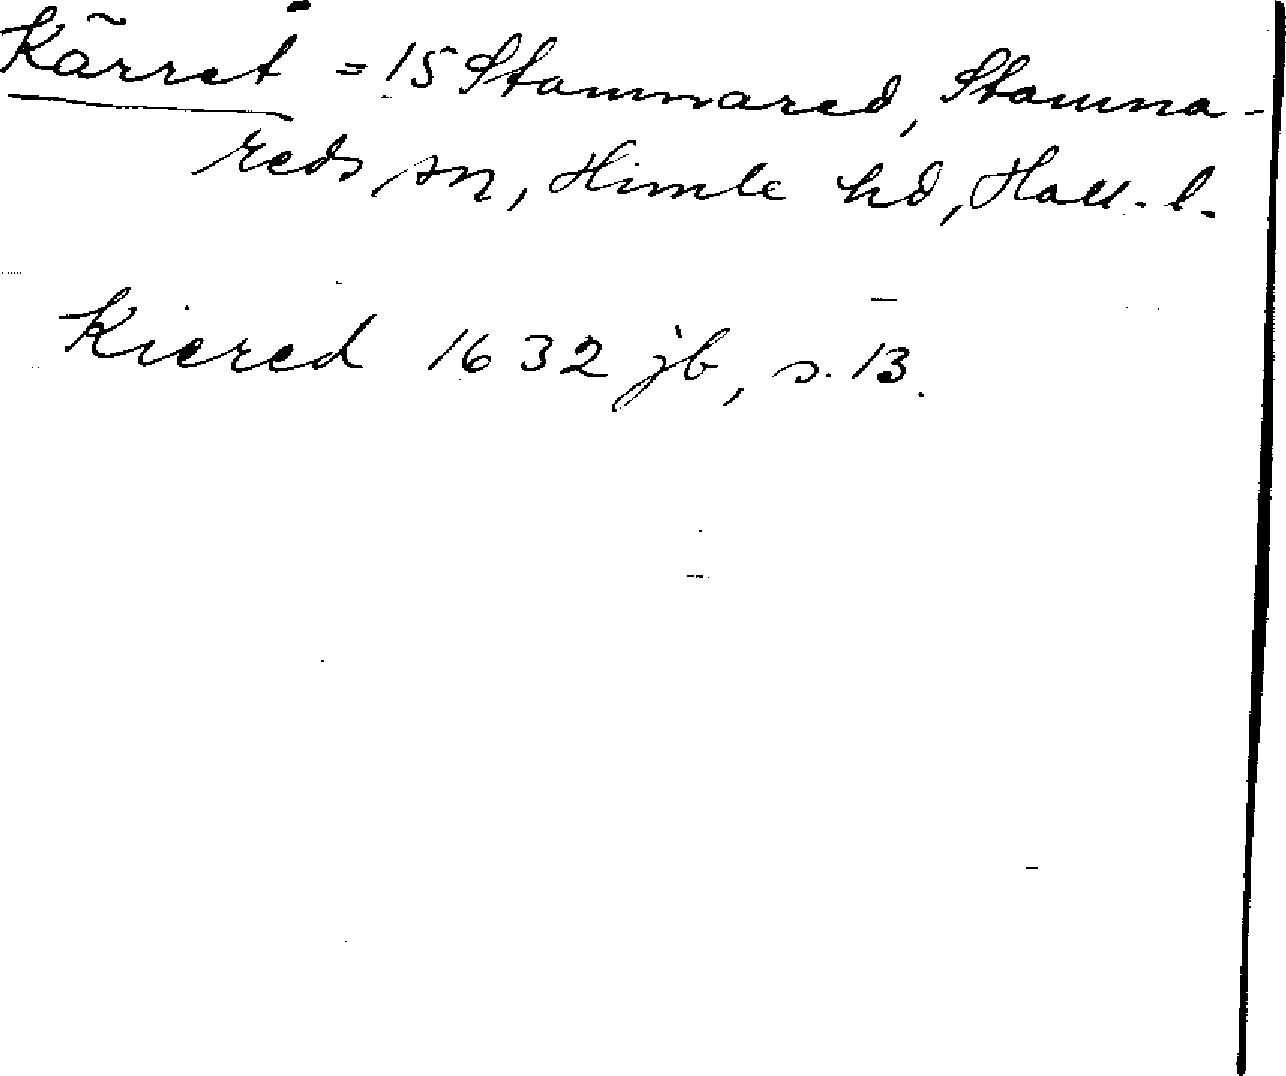 Kärret = 15 Stamnared, Stamna-
reds sn, Himle hd, Hall. l.
Kiered 1632 jb, s. 13.